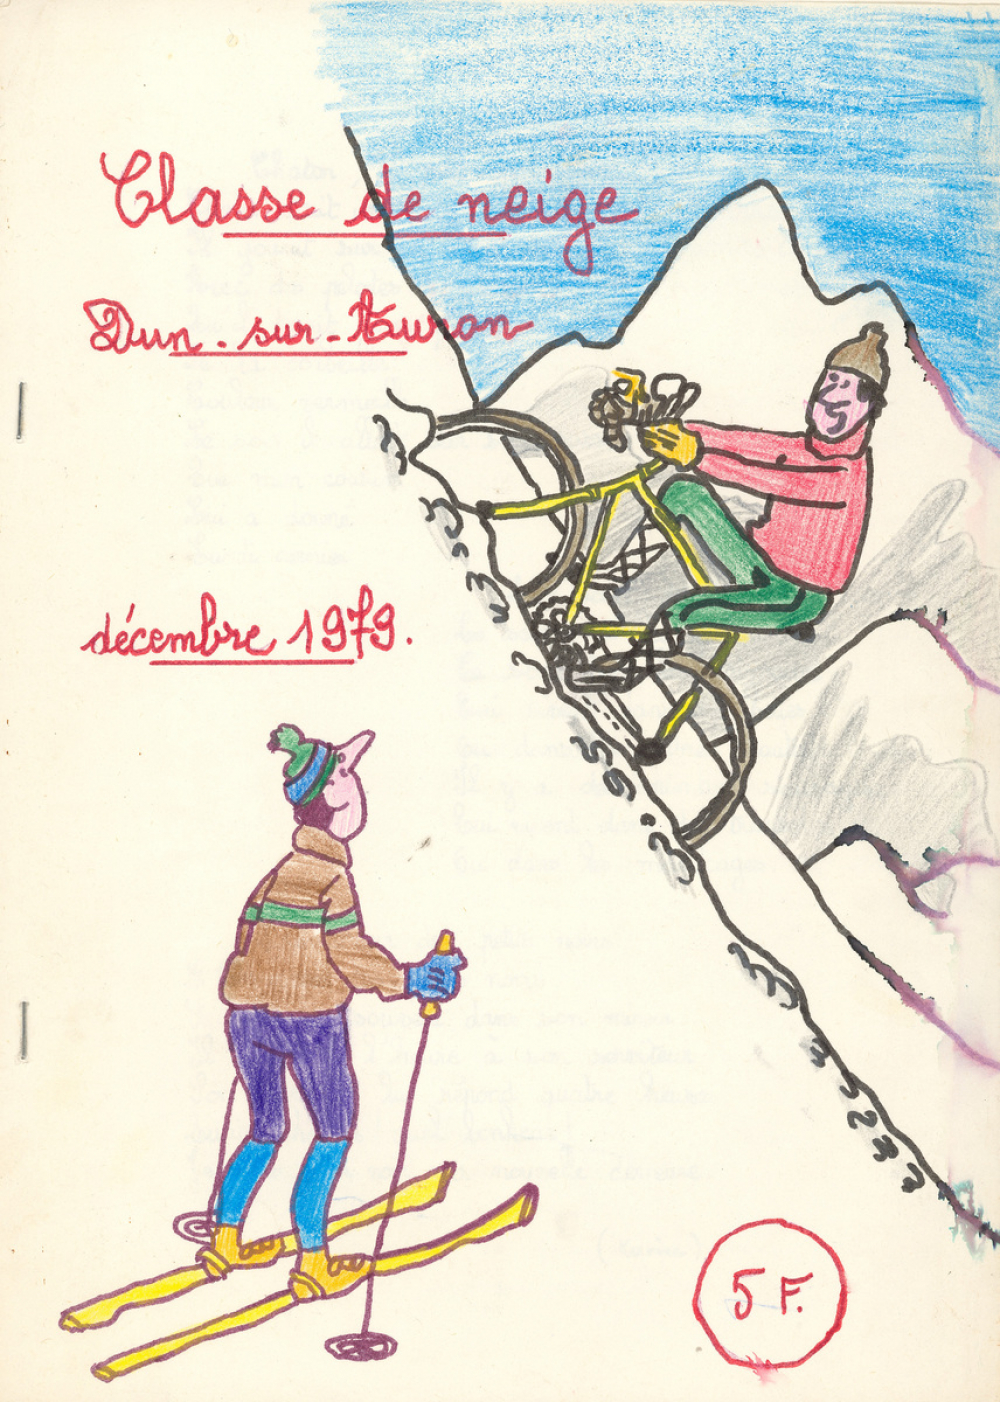 Classe de neige
Dun-sur-Auron
décembre 1979.
5 F.